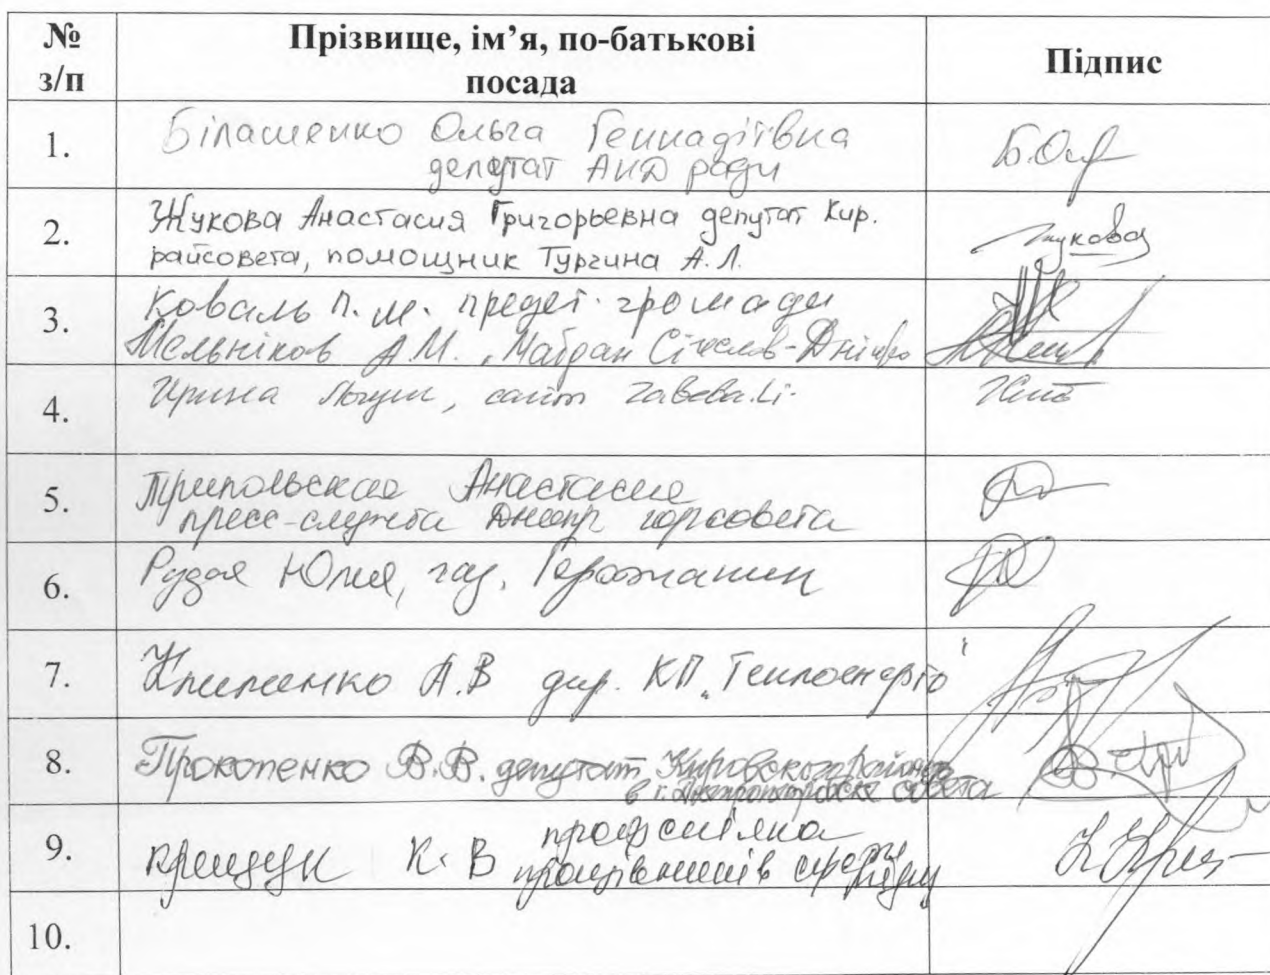 № з/п
Прізвище, ім’я, по-батькові
посада
Підпис
1.
Білашенко Ольга Геннадіївна
депутат АНД ради
Б.Ол
2.
Жукова Анастасия Григорьевна депутат Кир.
райсовета, помощник Тургина А.Л.
Жукова
3.
Коваль П.М. предст. громади
Мельніков А.М. "Майдан Січеслав-Дніпро
4.
Ирина сайт
5.
Трипольская Анастасия
пресс-служба Днепр горсовета
6.
Рудая Юлия, газ. Горожанин
7.
Клименко А.В дир. КП "Теплоенерго"
8.
Прокопенко В.В. депутат Кировского районного
в г. Днепропетровске совета
9.
Крещук К.В профспілка
працівників сфери
10.